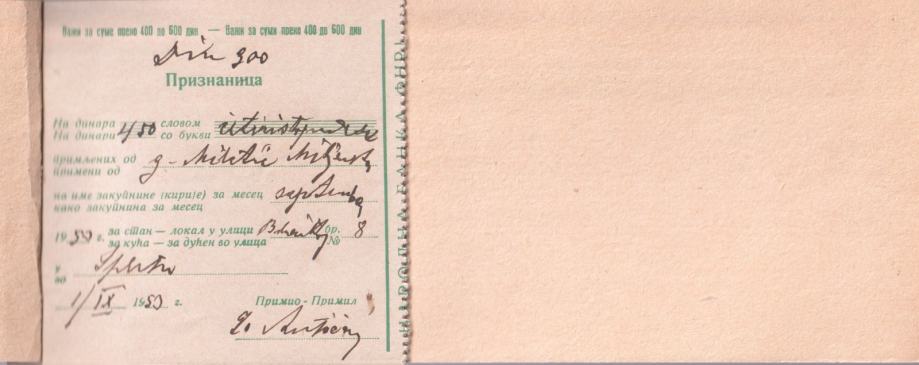 Важи за суме преко 400 до 600 дин — Важи за суми преко 400 до 600 дин
Din 300
Признаница
На динара словом
На динари 450 со букви
примљених од
примени од g.
на име закупнине (кирије) за месец septembar
како закупнина за месец
1953 г. за стан — локал у улици бр. 8
за кућа — за дућен во улица №
у
во
1/IX 1953 г. Примио - Примил
НАРОДНА БАНКА ФНРЈ